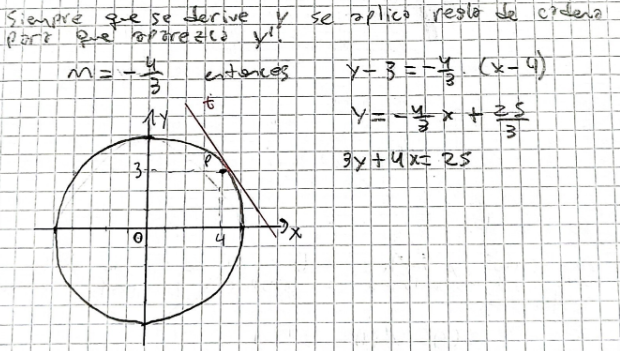 Siempre que se derive y se aplica regla de cadena
para que aparezca y'.
m = -4/3 entonces y - 3 = -4/3 . (x - 4)
y = -4/3 x + 25/3
3y + 4x = 25
t
y
P
3
0
4
x